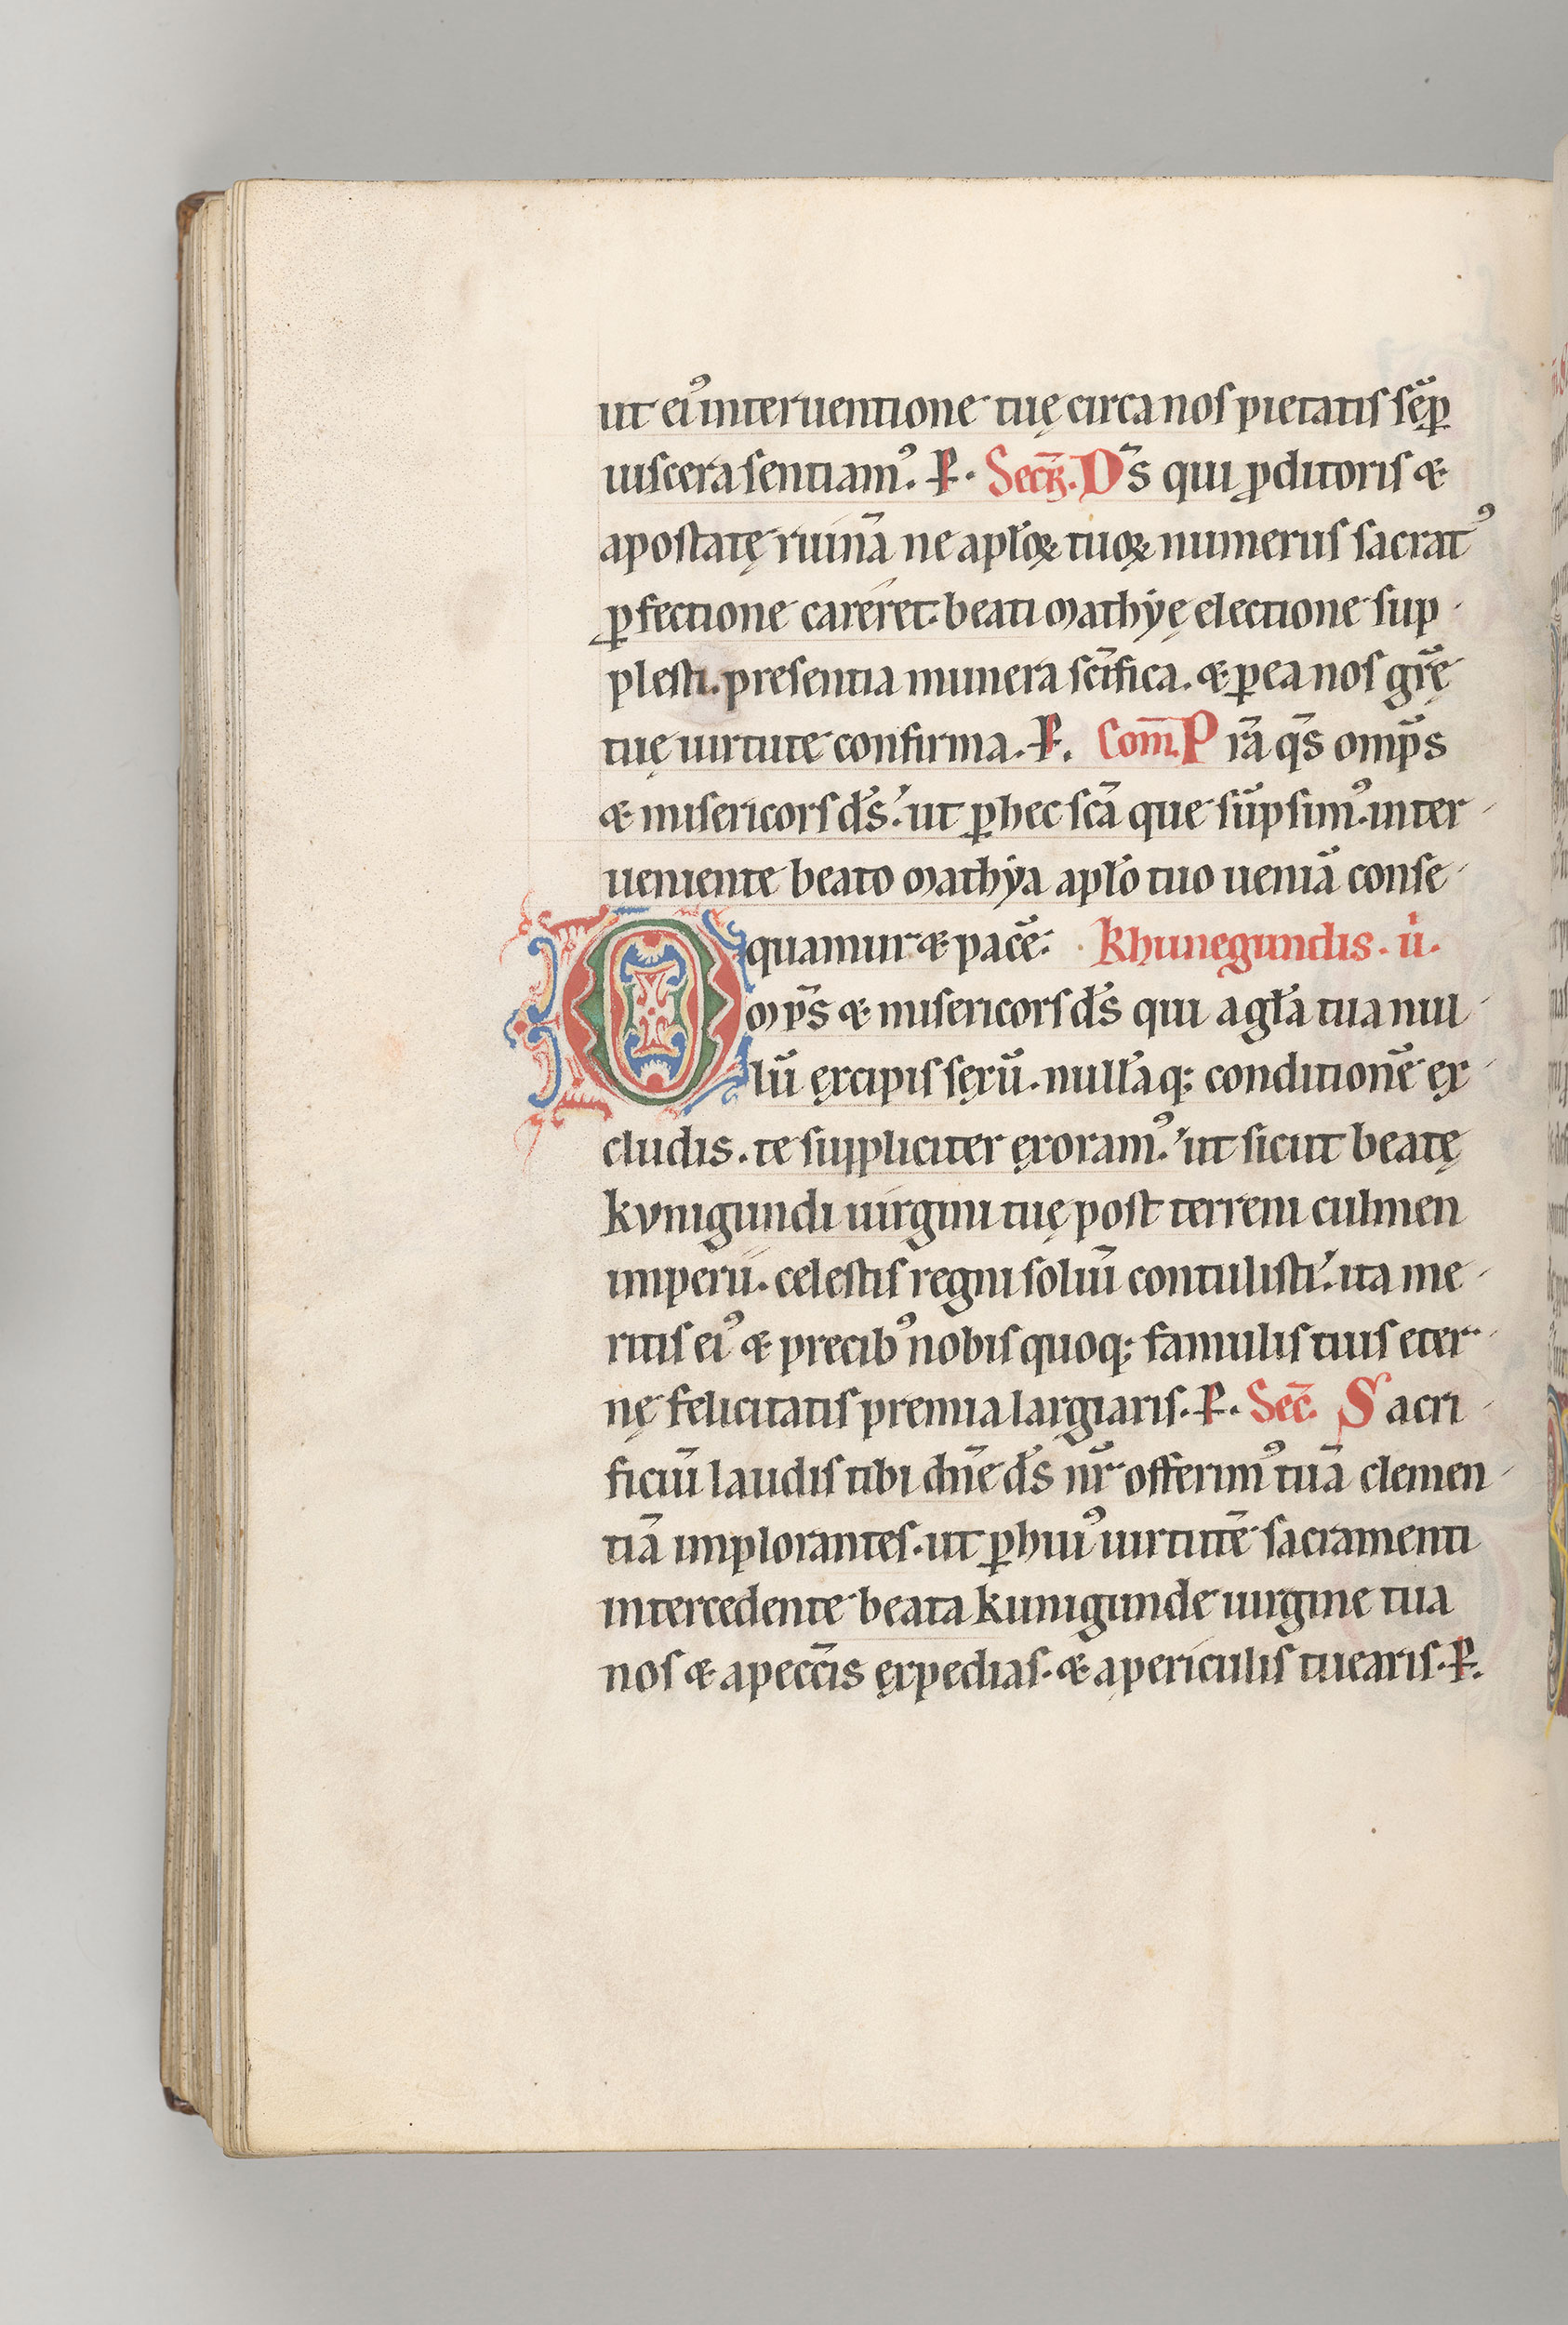 ut ei᷒ interuentione tuę circa nos pietatis sēꝑ
uiscera sentiam᷒. P̵. Secr̄. Ds̄ qui ꝓditoris &
apostatę ruinā ne apl̄oꝝ tuoꝝ numerus sacrat᷒
ꝑfectione careret. beati Mathyę electione sup
plesti. presentia munera sc̄ifica. & ꝑ ea nos gr̄ę
tuę uirtute confirma. P̵. Com̄. Pr̄a qs̄ omp̄s
& misericors ds̄. ut ꝑ hec sc̄a que sūpsim᷒. inter
ueniente beato Mathya apl̄o tuo ueniā conse
quamur & pacē. Khunegundis. ū.
Omp̄s & misericors ds̄ qui a gr̄a tua nul
lū ęxcipis sęxū. nullāq; conditionē ęx
cludis. te suppliciter ęxoram᷒. ut sicut beatę
kvnigundi uirgini tuę post terreni culmen
imperii. celestis regni soliū contulisti. ita me
ritis ei᷒ & precib᷒ nobis quoq; famulis tuis eter
nę felicitatis premia largiaris. P̵. Sec̄. Sacri
ficiū laudis tibi dn̄e ds̄ nr̄ offerim᷒ tuā clemen
tiā implorantes. ut ꝑ hui᷒ uirtutē sacramenti
intercedente beata kunigunde uirgine tua
nos & a pecc̄is ęxpedias. & a periculis tuearis. P̵.